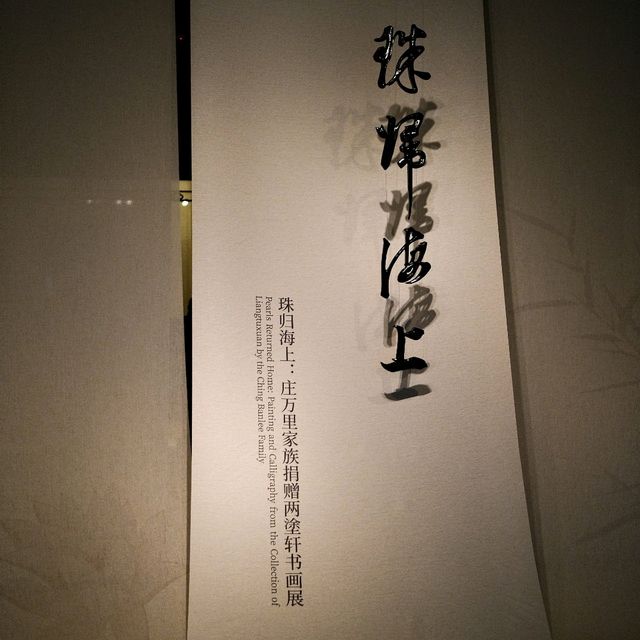 珠歸海上
珠归海上：庄万里家族捐赠两塗轩书画展
Pearls Returned Home: Painting and Calligraphy from the Collection of
Liangtuxuan by the Ching Banlee Family